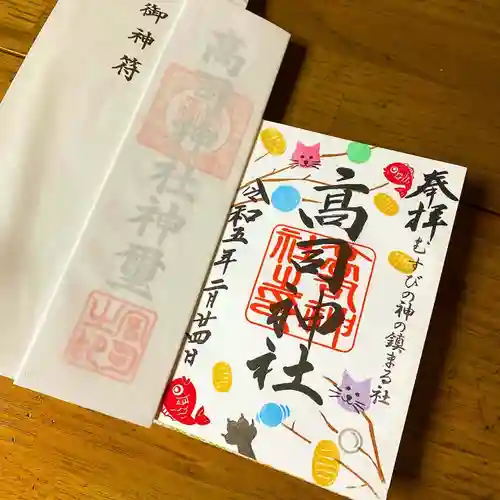 御神符
高司神社神璽
奉拝
むすびの神の鎮まる社
高司神社
令和五年二月廿四日